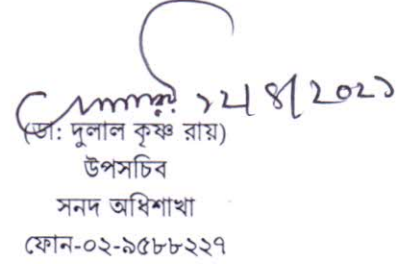 ১২/৪/২০২১
(ডা: দুলাল কৃষ্ণ রায়)
উপসচিব
সনদ অধিশাখা
ফোন-০২-৯৫৮৮২২৭